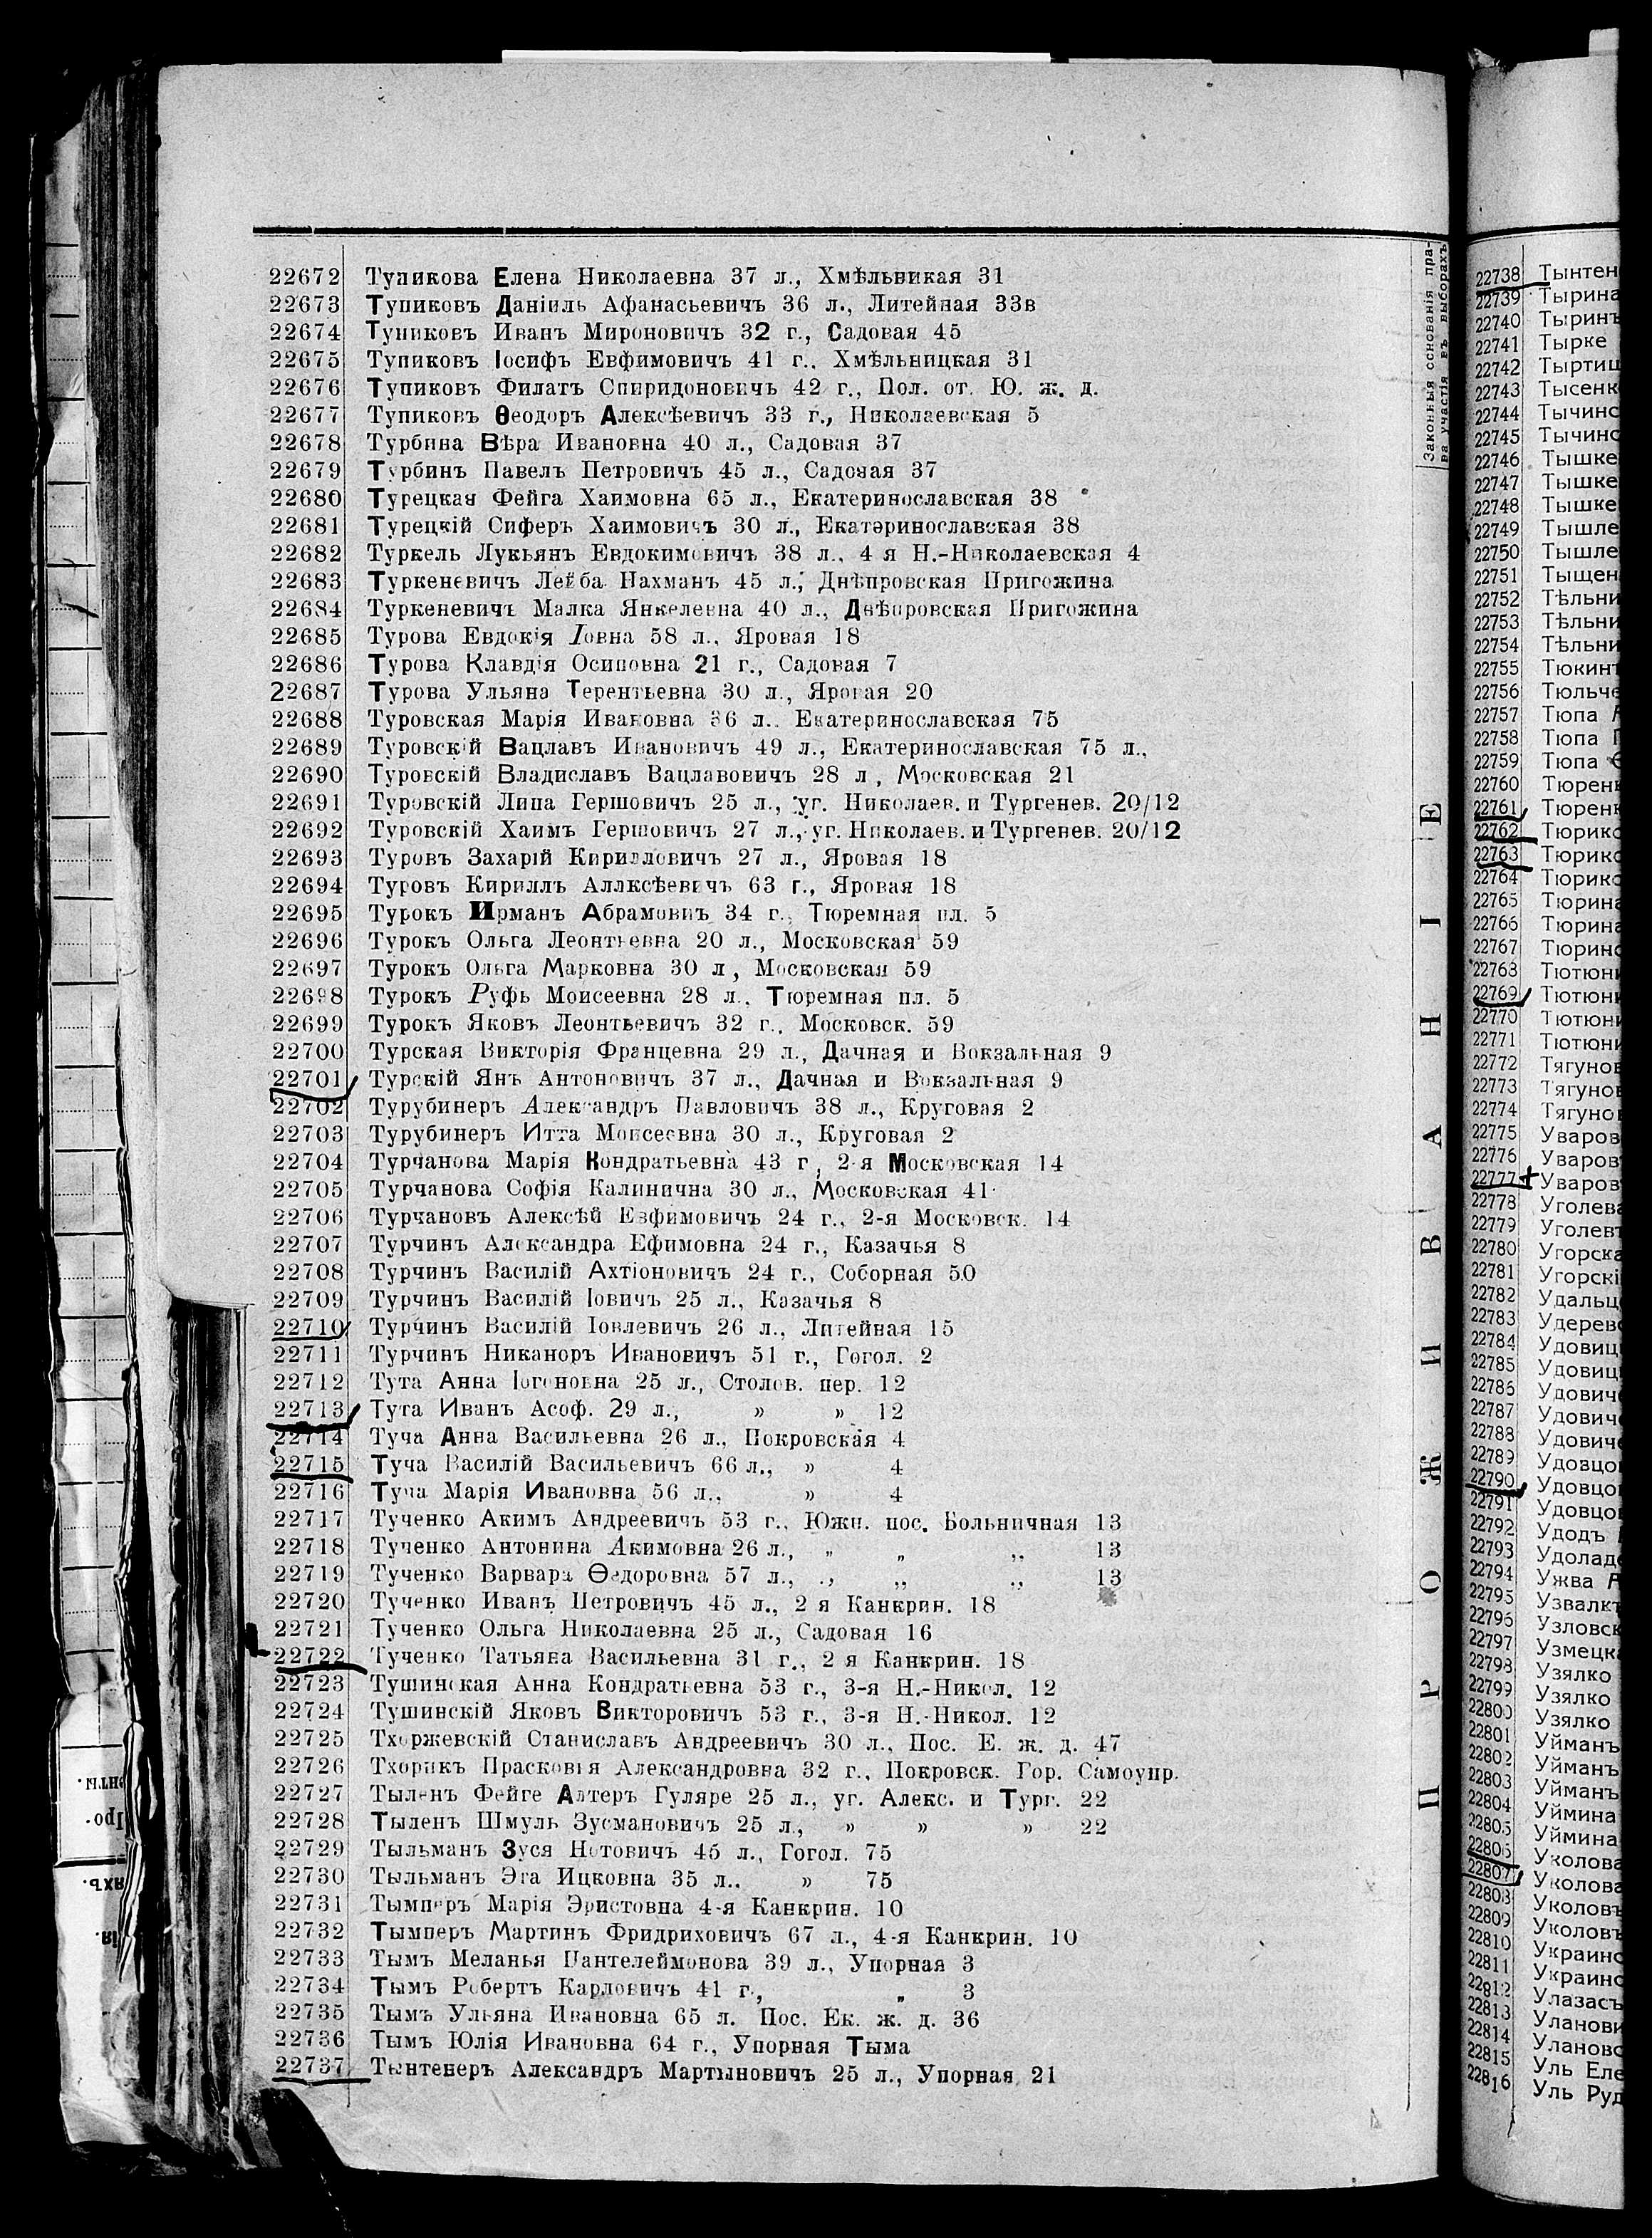 22672 Тупикова Елена Николаевна 37 л., Хмѣльникая 31
22673 Тупиковъ Даніиль Афанасьевичъ 36 л., Литейная 33в
22674 Тупиковъ Иванъ Мироновичъ 32 г., Садовая 45
22675 Тупиковъ Іосифъ Евфимовичъ 41 г., Хмѣльницкая 31
22676 Тупиковъ Филатъ Спиридоновичъ 42 г., Пол. от. Ю. ж. д.
22677 Тупиковъ Ѳеодоръ Алексѣевичъ 33 г., Николаевская 5
22678 Турбина Вѣра Ивановна 40 л., Садовая 37
22679 Турбинъ Павелъ Петровичъ 45 л., Садовая 37
22680 Турецкая Фейга Хаимовна 65 л., Екатеринославская 38
22681 Турецкій Сиферъ Хаимовичъ 30 л., Екатеринославская 38
22682 Туркель Лукьянъ Евдокимовичъ 38 л., 4 я Н.-Николаевская 4
22683 Туркеневичъ Лейба Нахманъ 45 л., Днѣпровская Пригожина
22684 Туркеневичъ Малка Янкелевна 40 л., Днѣпровская Пригожина
22685 Турова Евдокія Іовна 58 л., Яровая 18
22686 Турова Клавдія Осиповна 21 г., Садовая 7
22687 Турова Ульяна Терентьевна 30 л., Яровая 20
22688 Туровская Марія Ивановна 36 л., Екатеринославская 75
22689 Туровскій Вацлавъ Ивановичъ 49 л., Екатеринославская 75 л.,
22690 Туровскій Владиславъ Вацлавовичъ 28 л, Московская 21
22691 Туровскій Липа Гершовичъ 25 л., уг. Николаев. и Тургенев. 20/12
22692 Туровскій Хаимъ Гершовичъ 27 л., уг. Николаев. и Тургенев. 20/12
22693 Туровъ Захарій Кирилловичъ 27 л., Яровая 18
22694 Туровъ Кириллъ Аллксѣевичъ 63 г., Яровая 18
22695 Турокъ Ирманъ Абрамовичъ 34 г., Тюремная пл. 5
22696 Турокъ Ольга Леонтьевна 20 л., Московская 59
22697 Турокъ Ольга Марковна 30 л, Московская 59
22698 Турокъ Руфь Моисеевна 28 л., Тюремная пл. 5
22699 Турокъ Яковъ Леонтьевичъ 32 г., Московск. 59
22700 Турская Викторія Францевна 29 л., Дачная и Вокзальная 9
22701 Турскій Янъ Антоновичъ 37 л., Дачная и Вокзальная 9
22702 Турубинеръ Александръ Павловичъ 38 л., Круговая 2
22703 Турубинеръ Итта Моисеевна 30 л., Круговая 2
22704 Турчанова Марія Кондратьевна 43 г, 2-я Московская 14
22705 Турчанова Софія Калинична 30 л., Московская 41
22706 Турчановъ Алексѣй Евфимовичъ 24 г., 2-я Московск. 14
22707 Турчинъ Александра Ефимовна 24 г., Казачья 8
22708 Турчинъ Василій Ахтіоновичъ 24 г., Соборная 50
22709 Турчинъ Василій Іовичъ 25 л., Казачья 8
22710 Турчинъ Василій Іовлевичъ 26 л., Литейная 15
22711 Турчинъ Никаноръ Ивановичъ 51 г., Гогол. 2
22712 Тута Анна 25 л., Столов. пер. 12
22713 Тута Иванъ Асоф. 29 л., » » 12
22714 Туча Анна Васильевна 26 л., Покровская 4
22715 Туча Василій Васильевичъ 66 л., » 4
22716 Туча Марія Ивановна 56 л., » 4
22717 Тученко Акимъ Андреевичъ 53 г., Южн. пос. Больничная 13
22718 Тученко Антонина Акимовна 26 л., „ „ „ 13
22719 Тученко Варвара Ѳедоровна 57 л., „ „ „ 13
22720 Тученко Иванъ Петровичъ 45 л., 2 я Канкрин. 18
22721 Тученко Ольга Николаевна 25 л., Садовая 16
22722 Тученко Татьяна Васильевна 31 г., 2 я Канкрин. 18
22723 Тушинская Анна Кондратьевна 53 г., 3-я Н.-Никол. 12
22724 Тушинскій Яковъ Викторовичъ 53 г., 3-я Н.-Никол. 12
22725 Тхоржевскій Станиславъ Андреевичъ 30 л., Пос. Е. ж. д. 47
22726 Тхорикъ Прасковія Александровна 32 г., Покровск. Гор. Самоупр.
22727 Тыленъ Фейге Алтеръ Гуляре 25 л., уг. Алекс. и Тург. 22
22728 Тыленъ Шмуль Зусмановичъ 25 л., » » » 22
22729 Тыльманъ Зуся Нотовичъ 45 л., Гогол. 75
22730 Тыльманъ Эга Ицковна 35 л.. » 75
22731 Тымперъ Марія Эристовна 4-я Канкрин. 10
22732 Тымперъ Мартинъ Фридриховичъ 67 л., 4-я Канкрин. 10
22733 Тымъ Меланья Пантелеймонова 39 л., Упорная 3
22734 Тымъ Робертъ Карловичъ 41 г., „ 3
22735 Тымъ Ульяна Ивановна 65 л. Пос. Ек. ж. д. 36
22736 Тымъ Юлія Ивановна 64 г., Упорная Тыма
22737 Тынтенеръ Александръ Мартыновичъ 25 л., Упорная 21
Законныя основанія пра-
ва участія въ выборахъ
ПРОЖИВАНІЕ
22738 Тынтен
22739 Тырина
22740 Тыринъ
22741 Тырке
22742 Тыртиш
22743 Тысенк
22744 Тычинс
22745 Тычинс
22746 Тышке
22747 Тышке
22748 Тышке
22749 Тышле
22750 Тышле
22751 Тыщен
22752 Тѣльни
22753 Тѣльни
22754 Тѣльни
22755 Тюкинъ
22756 Тюльче
22757 Тюпа
22758 Тюпа
22759 Тюпа
22760 Тюрен
22761 Тюренк
22762 Тюрико
22763 Тюрико
22764 Тюрико
22765 Тюрина
22766 Тюрина
22767 Тюрино
22768 Тютюни
22769 Тютюни
22770 Тютюни
22771 Тютюни
22772 Тягунов
22773 Тягунов
22774 Тягунов
22775 Уваров
22776 Уваров
22777 Уваров
22778 Уголева
22779 Уголевъ
22780 Угорска
22781 Угорскі
22782 Удальц
22783 Удерево
22784 Удовиц
22785 Удовиц
22786 Удовиче
22787 Удовиче
22788 Удовиче
22789 Удовцо
22790 Удовцо
22791 Удовцо
22792 Удодъ
22793 Удолад
22794 Ужва
22795 Узвалкъ
22796 Узловск
22797 Узмецка
22798 Узялко
22799 Узялко
22800 Узялко
22801 Уйманъ
22802 Уйманъ
22803 Уйманъ
22804 Уймина
22805 Уймина
22806 Уколова
22807 Уколова
22808 Уколовъ
22809 Уколовъ
22810 Украинс
22811 Украинс
22812 Улазасъ
22813 Уланови
22814 Улановс
22815 Уль Еле
22816 Уль Руд